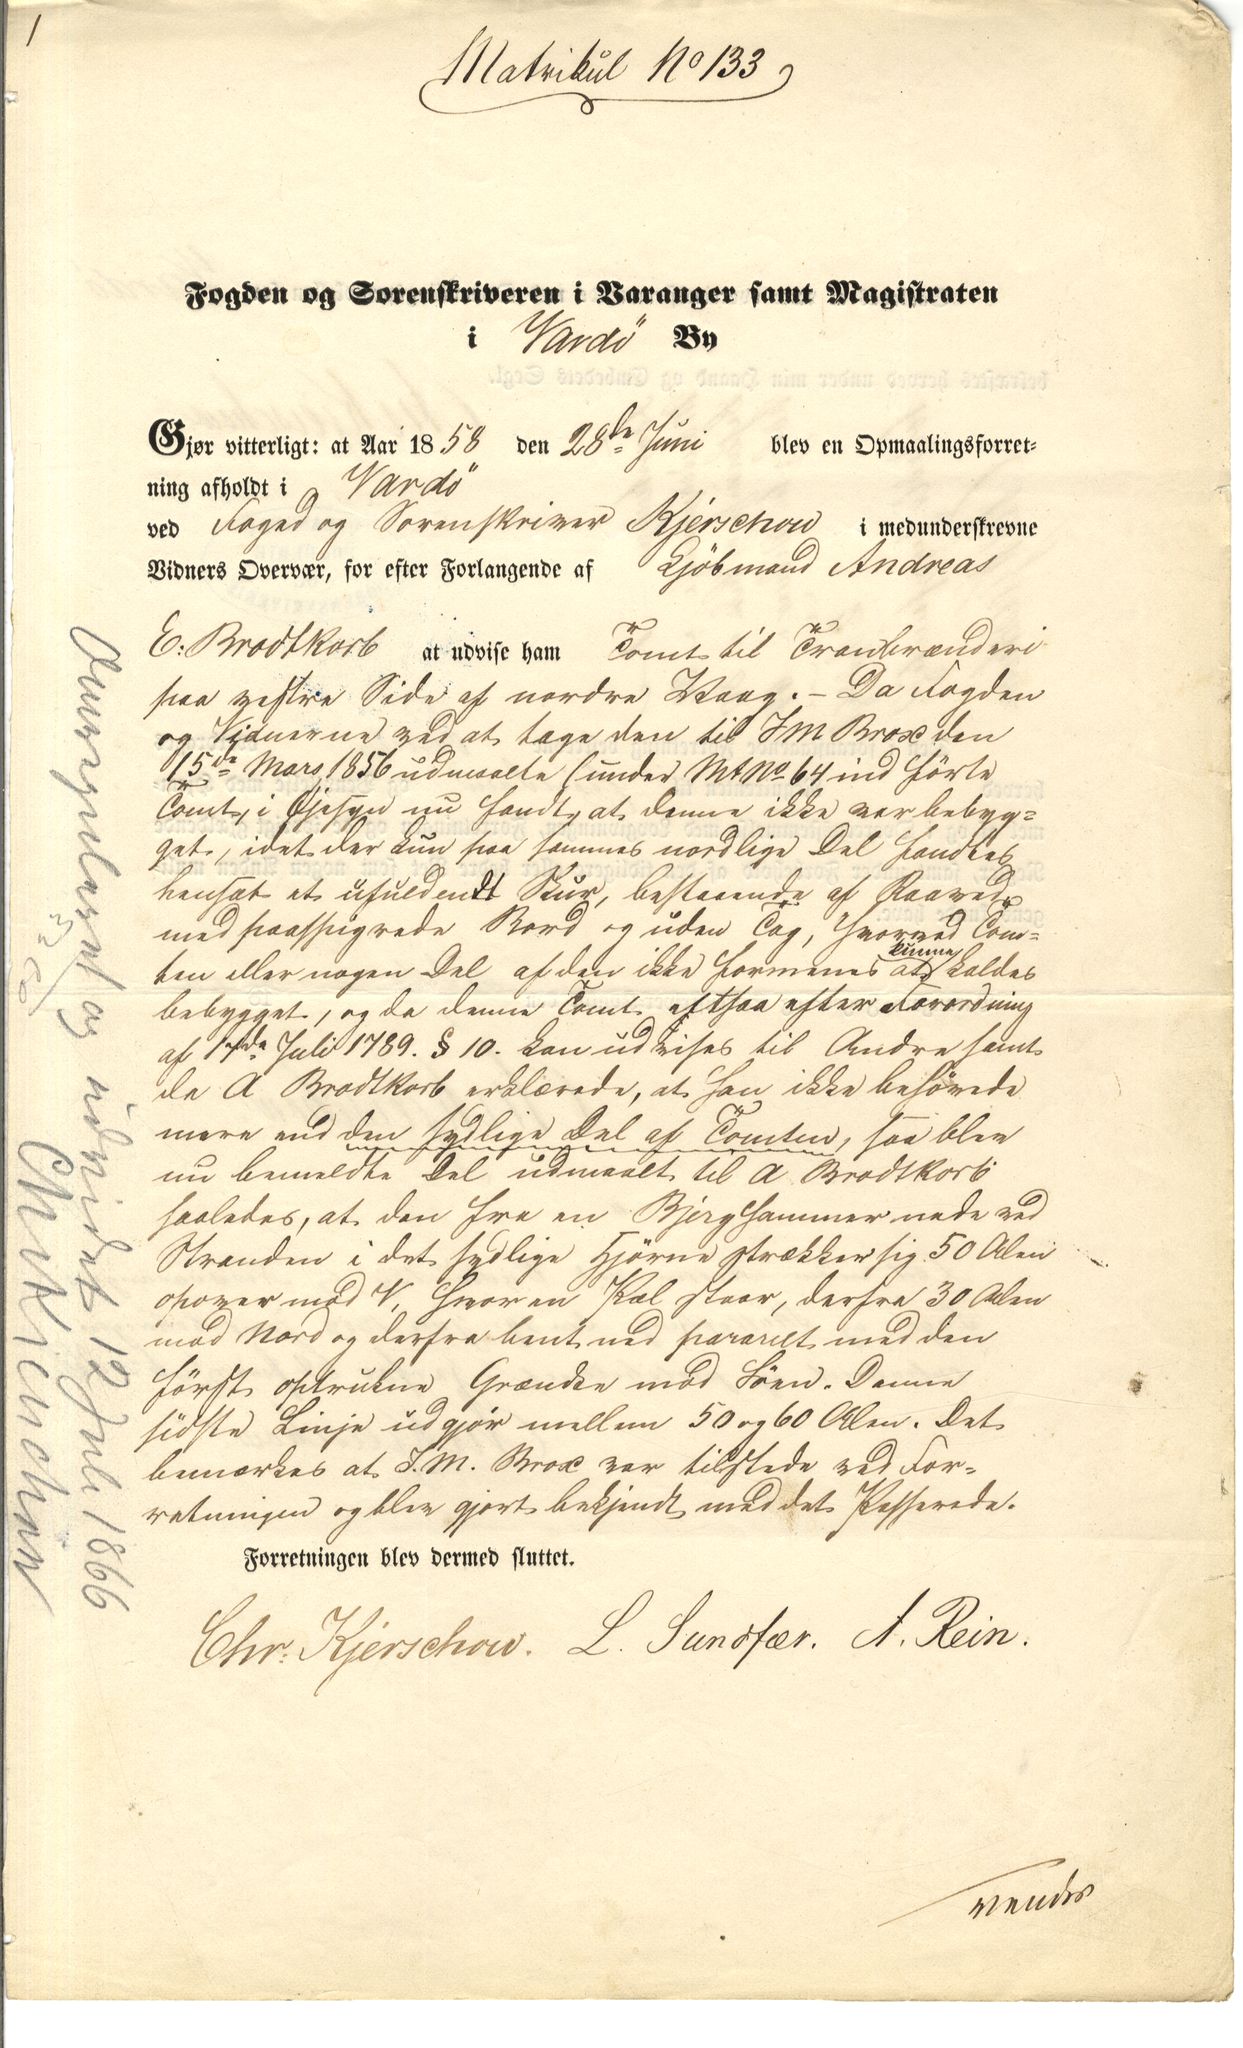 1
Matrikul No 133
Fogden og Sorenskriveren i Varanger samt Magistraten
i Vardö By
Gjør vitterligt: at Aar 1858 den 28de Juni blev en Opmaalingsforret-
ning afholdt i Vardö
ved Foged og Sorenskriver Kjerschow i medunderskrevne
Vidners Overvær, for efter Forlangende af Kjöbmand Andreas
E. Brodtkorb at udvise ham Tomt til Tranbrænderi
paa vestre Side af nordre Vaag. – Da Fogden
og Vidnerne ved at tage den til J M Brox den
15de Mars 1856 udmaalte (under Mt No 64 indførte
Tomt, i Øjesyn nu fandt, at denne ikke var bebyg=
get, idet der kun paa sammes nordlige Del fandtes
hensat et ufuldendt Skur, bestaaende af Raaved
med paaspigrede Bord og uden Tag, hvorved Tom=
ten eller nogen Del af den ikke formenes at kunne kaldes
bebygget, og da denne Tomt altsaa efter Forordning
af 17de Juli 1789. § 10. kan udvises til Andre samt
da A Brodtkorb erklærede, at han ikke behövede
mere end den sydlige Del af Tomten, saa blev
nu bemeldte Del udmaalt til A Brodtkorb
saaledes, at den fra en Berghammer nede ved
Stranden i det sydlige Hjörne strækker sig 50 Alen
opover mod V, hvor en Pæl staar, derfra 30 Alen
mod Nord og derfra bent ned pararelt med den
först optrukne Grændse mod Söen. Denne
sidste Linje udgjör mellem 50 og 60 Alen. Det
bemærkes at J. M. Brox var tilstede ved For=
retningen og blev gjort bekjendt med det Passerede.
Forretningen blev dermed sluttet.
Chr. Kjerschow. L. Sundfær. A. Rein.
vendes
og udvidet 12 Juli 1866